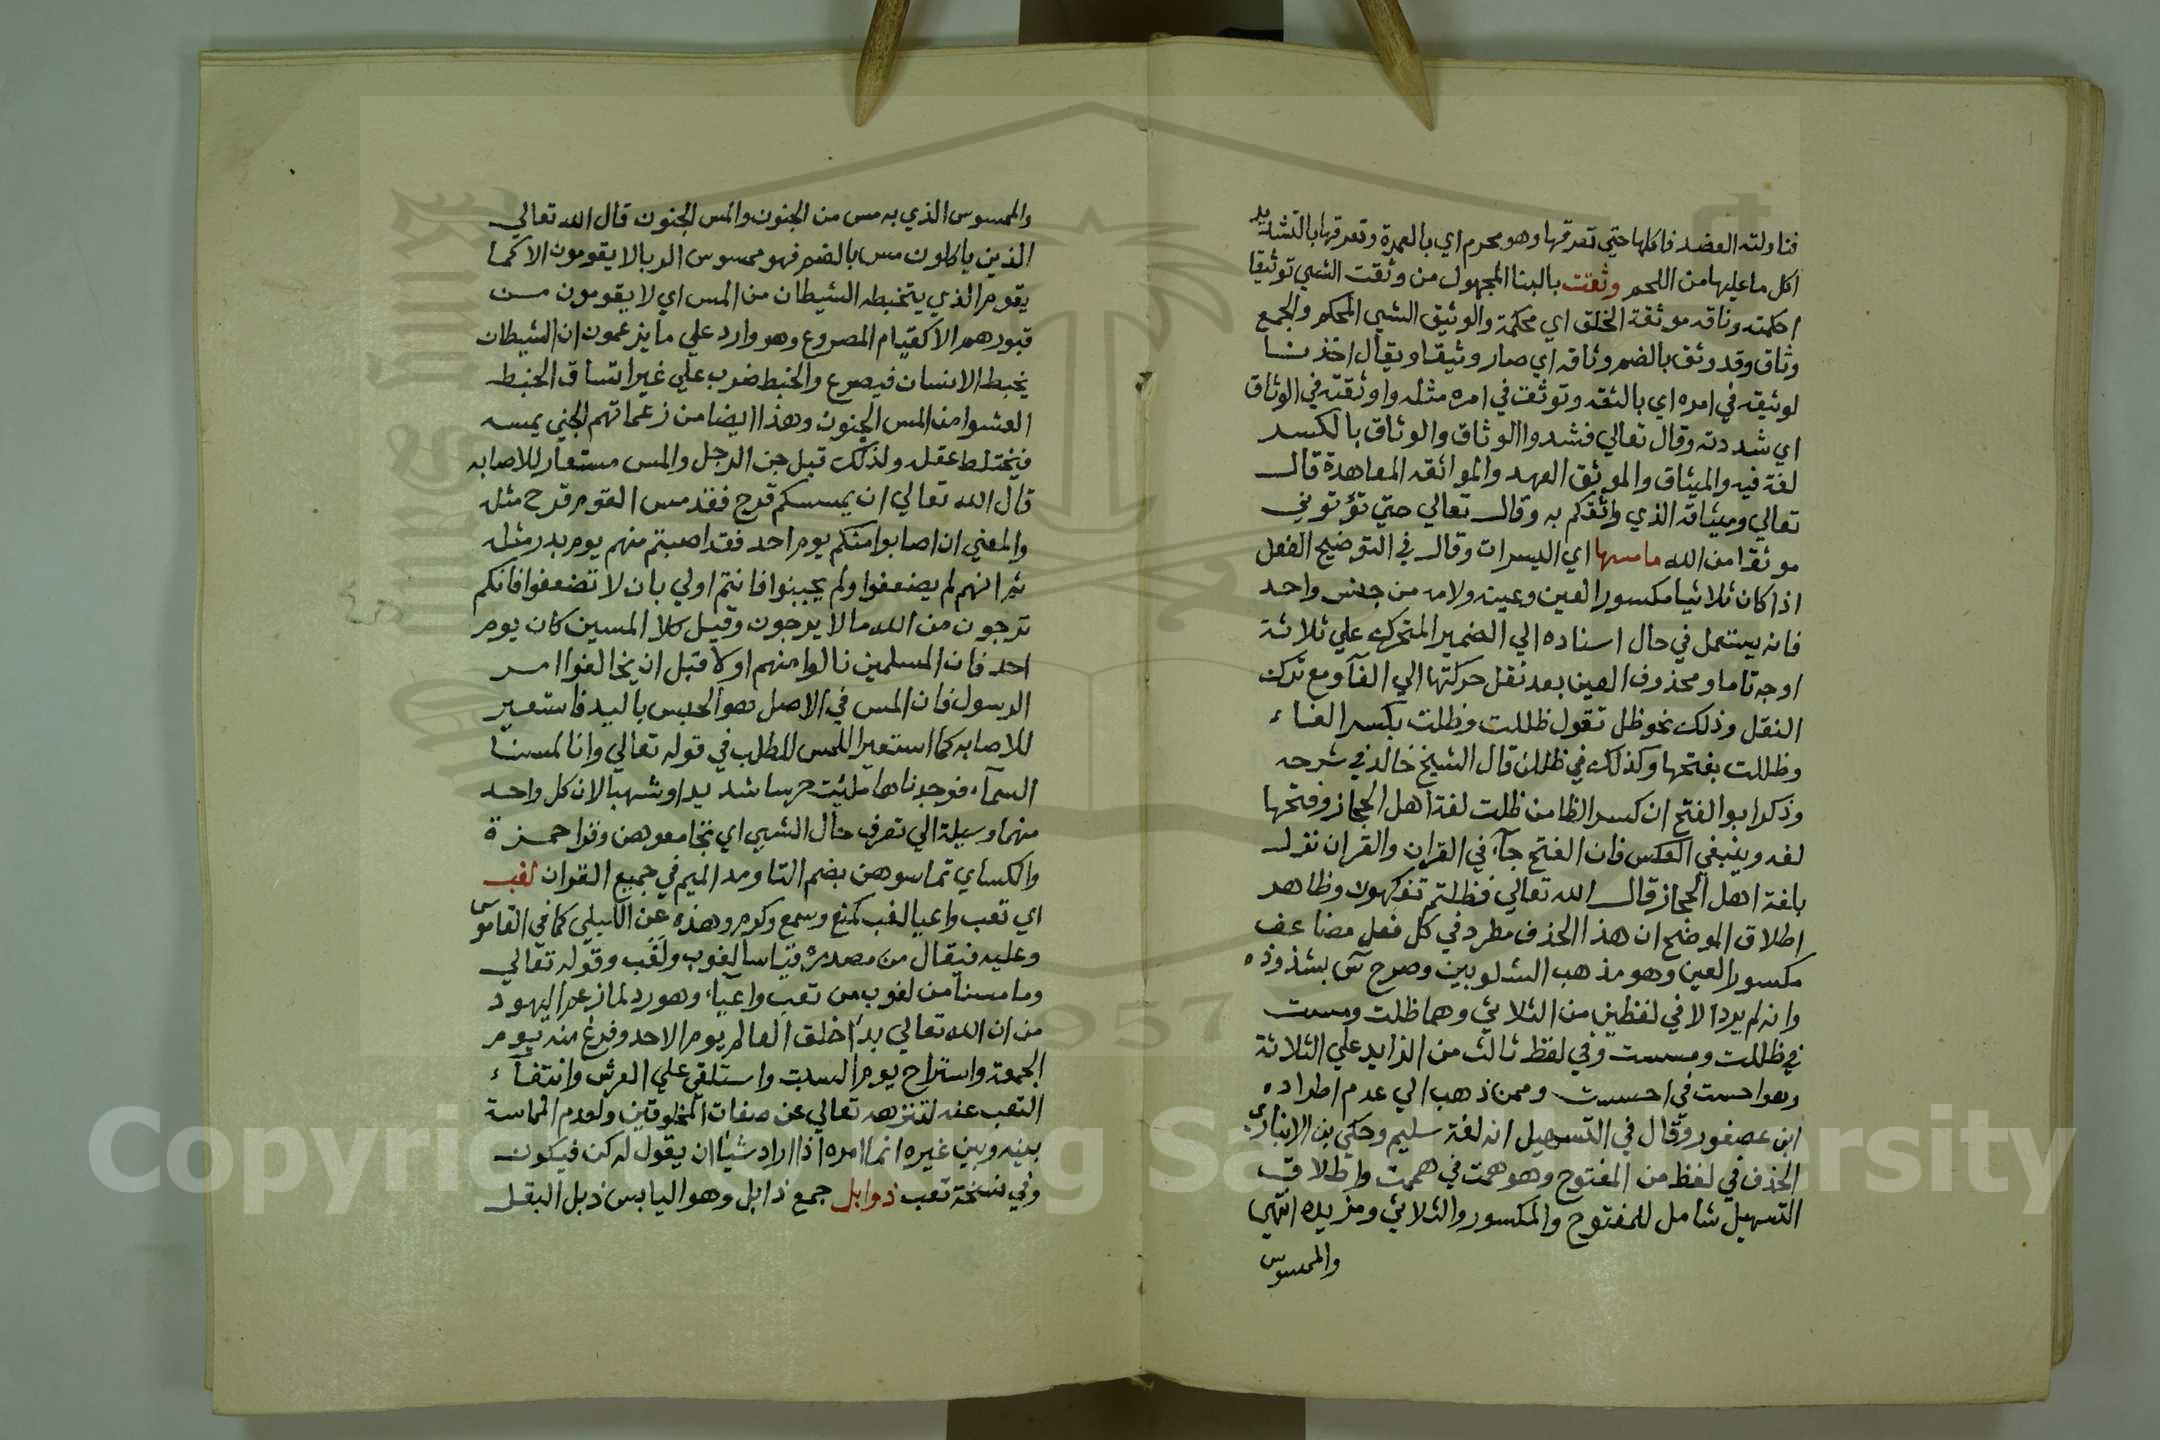 فناولته العضد فاكلها حتي تعرقها وهو محرم اي بالعمرة وتعرقها بالتشديد
اكل ما عليها من اللحم وثقت بالبنا المجهول من وثقت الشي توثيقا
احكمته وناقه موثقة الخلق اي محكمة والوثيق الشي المحكم والجمع
وثاق وقد وثق بالضم وثاقه اي صار وثيقا ويقال اخذ بنا
لوثيقه في امره اي بالثقه وتوثقت في امره مثله واوثقته في الوثاق
اي شددته وقال تعالي فشدوا الوثاق والوثاق بالكسر
لغة فيه والميثاق والموثق العهد والمواثقه المعاهدة قال
تعالي وميثاقه الذي واثقكم به وقال تعالي حتي تؤتوني
موثقا من الله مامسها اي اليسرات وقال في التوضيح الفعل
اذا كان ثلاثيا مكسور العين وعينه ولامه من جنس واحد
فانه يستعمل في حال اسناده الي الضمير المتحرك علي ثلاثة
اوجه تاما ومحذوف العين بعد نقل حركتها الي الفآ ومع ترك
النقل وذلك نحو ظل تقول ظللت وظلت بكسر الفاء
وظللت بفتحها وكذلك في ظللن قال الشيخ خالد في شرحه
وذكر ابو الفتح ان كسر الظا من ظلت لغة اهل الحجاز وفتحها
لغه وينبغي العكس فان الفتح جآء في القران والقران نزل
بلغة اهل الحجاز قال الله تعالي فظلتم تفكهون وظاهر
اطلاق الموضح ان هذا الحذف مطرد في كل فعل مضاعف
مكسور العين وهو مذهب الشلوبين وصرح س بشذوذه
وانه لم يرد الا في لفظين من الثلاثي وهما ظلت ومست
في ظللت ومسست وفي لفظ ثالث من الزايد علي الثلاثة
وهو احست في احسست وممن ذهب الي عدم اطراده
ابن عصفور وقال في التسهيل انه لغة سليم وحكي بن الانباري
الحذف في لفظ من المفتوح وهو همت في هممت واطلاق
التسهيل شامل للمفتوح والمكسور والثلاثي ومزيده انتهي
والممسوس
والممسوس الذي به مس من الجنون والمس الجنون قال الله تعالي
الذين ياكلون مس بالضم فهو ممسوس الربا لا يقومون الا كما
يقوم الذي يتخبطه الشيطان من المس اي لا يقومون من
قبورهم الا كقيام المصروع وهو وارد علي ما يزعمون ان الشيطان
يخبط الانسان فيصرع والخبط ضرب علي غير اتساق الخبط
العشوا من المس الجنون وهذا ايضا من زعماتهم الجني يمسه
فيختلط عقله ولذلك قيل جن الرجل والمس مستعار للاصابه
قال الله تعالي ان يمسسكم قرح فقد مس القوم قرح مثله
والمعني ان اصابوا منكم يوم احد فقد اصبتم منهم يوم بدر مثله
ثم انهم لم يضعفوا ولم يجبنوا فانتم اولي بان لا تضعفوا فانكم
ترجون من الله ما لا يرجون وقيل كلا المسين كان يوم
احد فان المسلمين نالوا منهم اولا قبل ان يخالفوا امر
الرسول فان المس في الاصل هو الحبس باليد فاستعير
للاصابه كما استعير اللمس للطلب في قوله تعالي وانا لمسنا
السمآء فوجدناها ملئت حرسا شديدا وشهبا لان كل واحد
منهما وسيلة الي تعرف حال الشي اي تجامعوهن وقرا حمزة
والكساي تماسوهن بضم التا ومد الميم في جميع القران لغب
اي تعب واعيا لغب كمنع وسمع وكرم وهذه عن اللبلي كما في القاموس
وعليه فيقال من مصدره قياسا لغوب ولغب وقوله تعالي
وما مسنا من لغوب من تعب واعيآء وهو رد لما زعم اليهود
من ان الله تعالي بدا خلق العالم يوم الاحد وفرغ منه يوم
الجمعة واستراح يوم السبت واستلقي علي العرش وانتفآء
التعب عنه لتنزهه تعالي عن صفات المخلوقين ولعدم المماسة
بينه وبين غيره انما امره اذا اراد شيا ان يقول له كن فيكون
وفي نسخة تعب ذوابل جمع ذابل وهو اليابس ذبل البقل
Copyright © King Saud University
1957